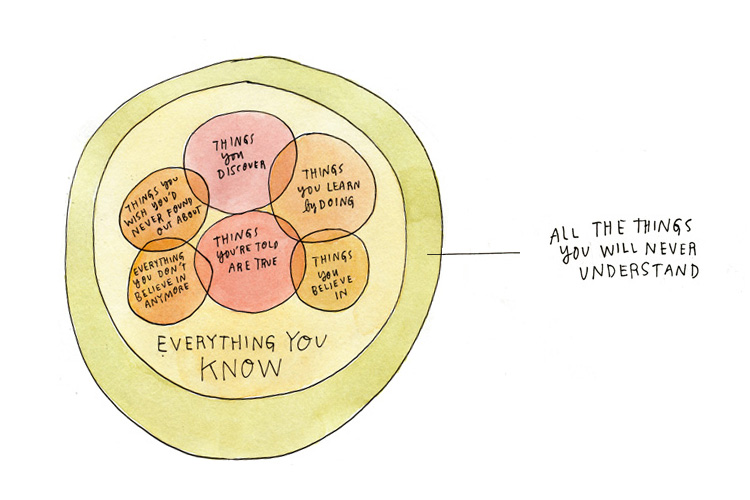 THINGS
YOU
DISCOVER
THINGS YOU
WISH YOU'D
NEVER FOUND
OUT ABOUT
THINGS
YOU LEARN
by DOING
EVERYTHING
YOU DON'T
BELIEVE IN
ANYMORE
THINGS
YOU'RE TOLD
ARE TRUE
THINGS
YOU
BELIEVE
IN
EVERYTHING YOU
KNOW
ALL THE THINGS
YOU WILL NEVER
UNDERSTAND